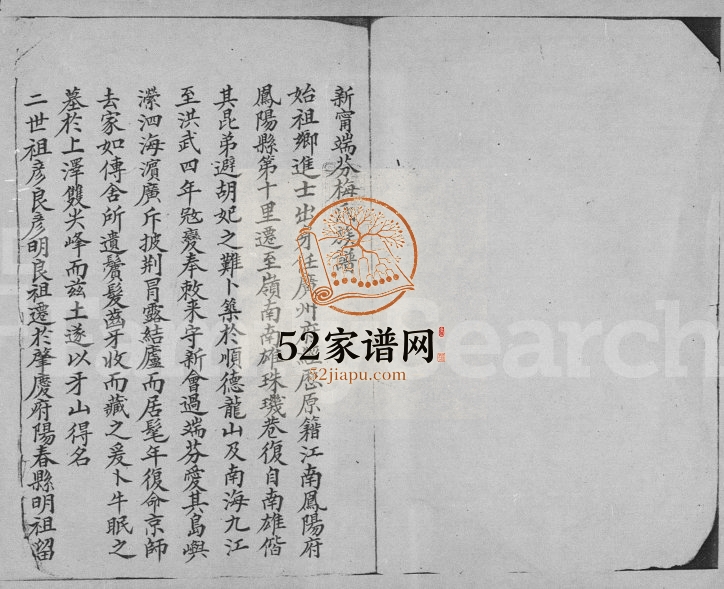 新甯端芬梅氏族譜
始祖鄉進士出身任廣州府經歷原籍江南鳳陽府
鳳陽縣第十里遷至嶺南南雄珠璣巷復自南雄偕
其昆弟避胡妃之難卜築於順德龍山及南海九江
至洪武四年寇變奉敕来守新會過端芬愛其島嶼
瀠泗海濱廣斥披荆冒露結廬而居髦年復命京師
去家如傳舍所遺鬢髮齒牙收而藏之爰卜牛眠之
墓於上澤雙尖峰而兹土遂以牙山得名
二世祖彦良彦明良祖遷於肇慶府陽春縣明祖留
52家谱网
52jiapu.com
Family Search